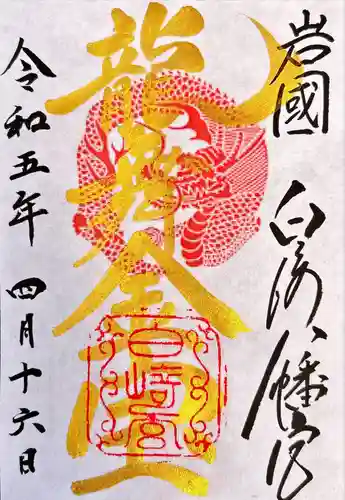 岩國 白崎八幡宮
龍
金
白崎宮
令和五年 四月十六日